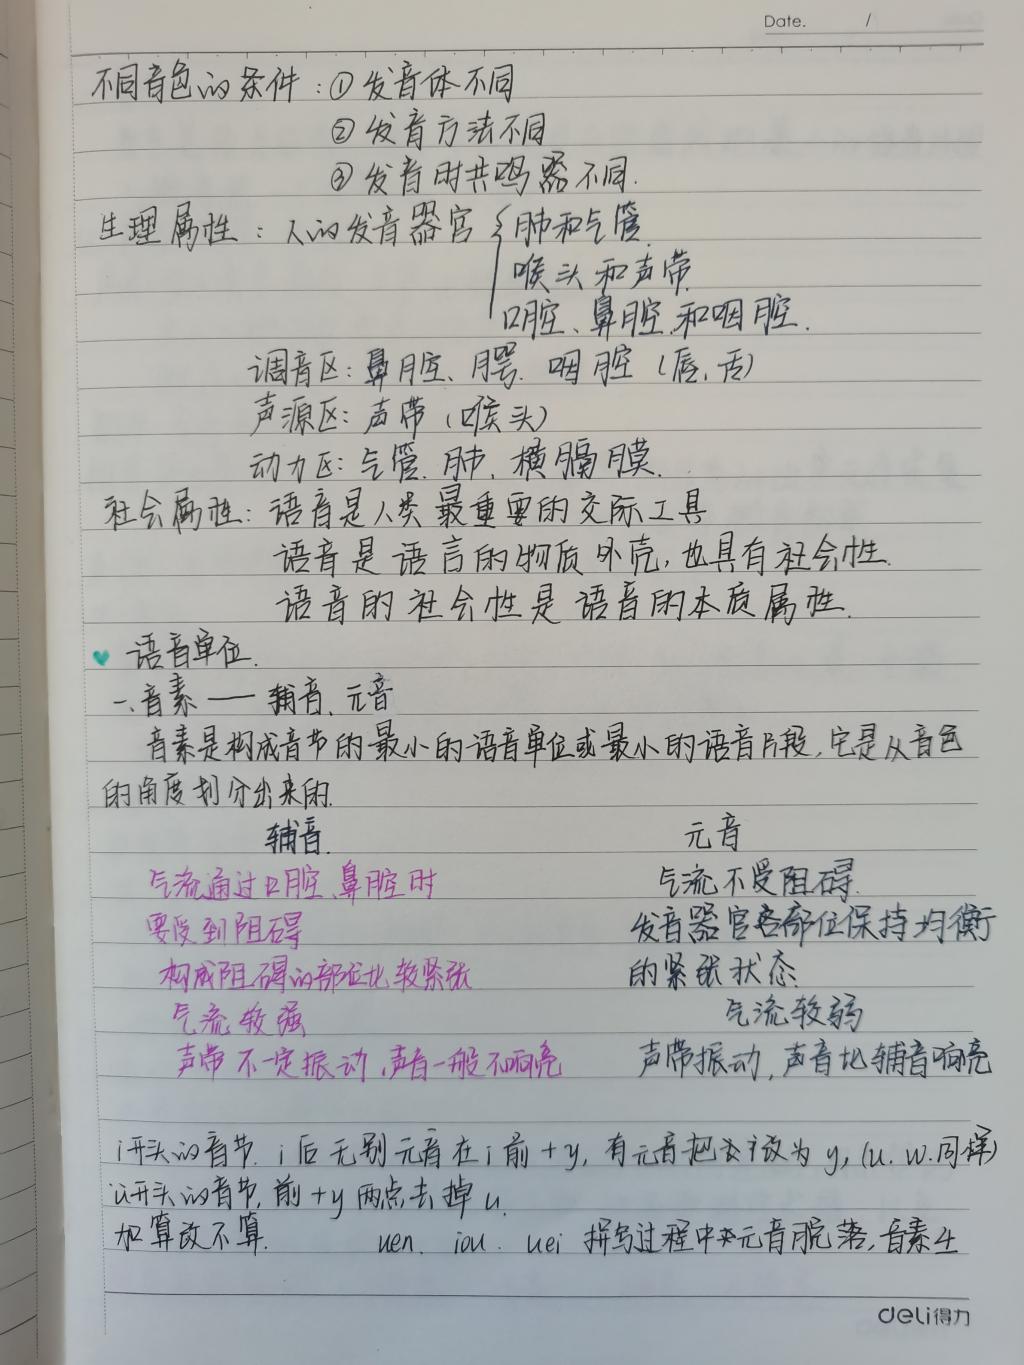 Date. /
不同音色的条件：①发音体不同
②发音方法不同
③发音时共鸣器不同.
生理属性：人的发音器官{肺和气管.
喉头和声带.
口腔、鼻腔和咽腔.
调音区：鼻腔、腭、咽腔（唇、舌）
声源区：声带（喉头）
动力区：气管、肺、横膈膜.
社会属性：语音是人类最重要的交际工具
语音是语言的物质外壳，也具有社会性.
语音的社会性是语音的本质属性.
语音单位.
一、音素——辅音、元音
音素是构成音节的最小的语音单位或最小的语音片段，它是从音色
的角度划分出来的.
辅音. 元音
气流通过口腔、鼻腔时 气流不受阻碍.
要受到阻碍 发音器官各部位保持均衡
构成阻碍的部位比较紧张 的紧张状态.
气流较强 气流较弱
声带不一定振动，声音一般不响亮 声带振动，声音比辅音响亮
i开头的音节. i后无别元音在i前+y，有元音把i改为y，(u. w.同样)
ü开头的音节，前+y两点去掉u.
加算改不算. uen. iou. uei 拼写过程中元音脱落，音素么
deli得力